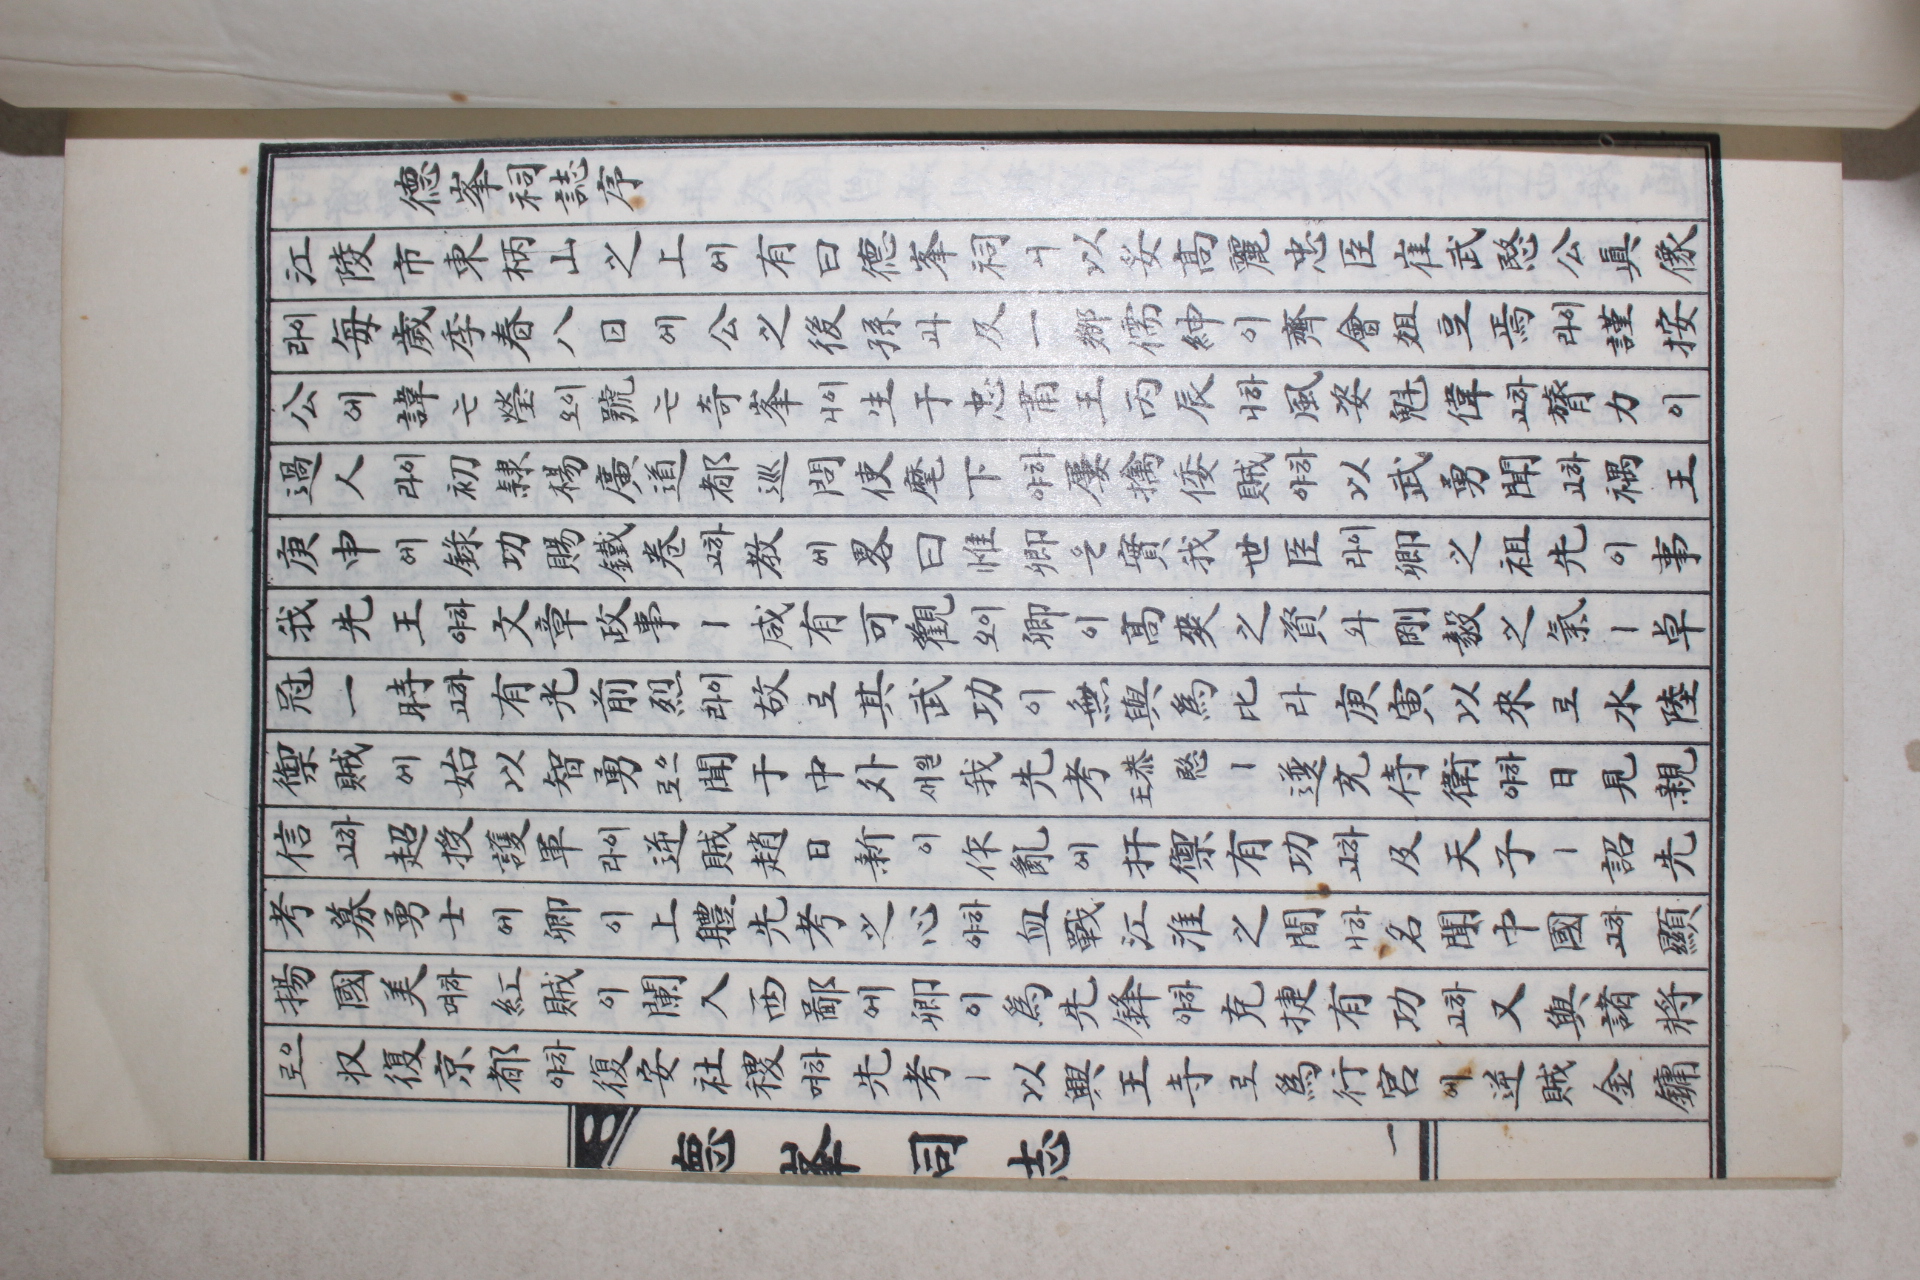 德峯祠誌序
江陵市東柄山之上에有曰德峯祠니以妥高麗忠臣崔武愍公眞像
이라每歲季春八日에公之後孫과及一鄕儒紳이齊會俎豆焉이라謹按
公에諱는瑩이오號는奇峯이니生于忠肅王丙辰하니風姿魁偉하고膂力이
過人이라初隷楊廣道都巡問使麾下하야屢擒倭賊하야以武勇聞하고禑王
庚申에錄功賜鐵卷하고敎에畧曰惟卿은實我世臣이라卿之祖先이事
我先王하야文章政事ㅣ咸有可觀이오卿이高爽之資와剛毅之氣ㅣ卓
冠一時하고有光前烈이라故로其武功이無與爲比라庚寅以來로水陸
禦賊에始以智勇으로聞于中外일새我先考恭愍王ㅣ遂充侍衛하야日見親
信하고超授護軍이라逆賊趙日新이作亂에扞禦有功하고及天子ㅣ詔先
考募勇士에卿이上體先考之心하야血戰江淮之間하니名聞中國하고顯
揚國美하며紅賊이闌入西鄙에卿이爲先鋒하야克捷有功하고又與諸將
으로収復京都하야復安社稷하며先考ㅣ以興王寺로爲行宮에逆賊金鏞
德峯祠誌 一